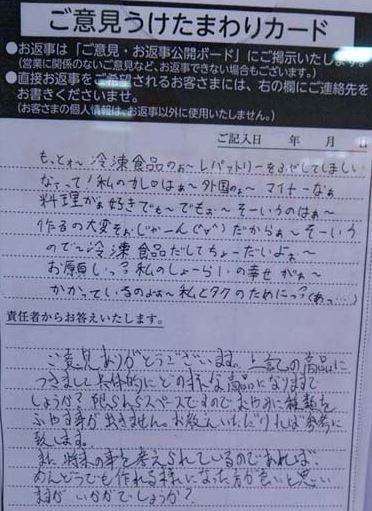 ご意見うけたまわりカード
●お返事は「ご意見・お返事公開ボード」にご掲示いたします。
(営業に関係のないご意見など、お返事できない場合もございます。)
●直接お返事をご希望されるお客さまには、右の欄にご連絡先を
お書きくださいませ。
(お客さまの個人情報は、お返事以外に使用いたしません。)
ご記入日 年 月 日
もっとぉ〜冷凍食品のぉ〜レパットリーをふやしてほしい
なぁって!私のカレはぁ〜外国のぉ〜マイナーなぁ
料理がぁ好きでも〜でもぉ〜そーいうのはぁ〜
作るの大変そぉじゃーん(˘▽˘)だからぁ〜そーいう
ので〜冷凍食品だしてちょーだいよぉ〜
お願いっ?私のしょーらいの幸せがぁ〜
かかっているのよぉ〜私とタクのためにっ?(あっ…)
責任者からお答えいたします。
ご意見ありがとうございます。上記の商品に
つきまして具体的にどの様な商品になりますで
しょうか?限られたスペースですのでむやみに種類を
ふやす事が出きません。お教えいただければ参考に
致します。
また将来の事を考えられているのであれば、
めんどうでも作れる様になった方が良いと思い
ますが いかがでしょうか?